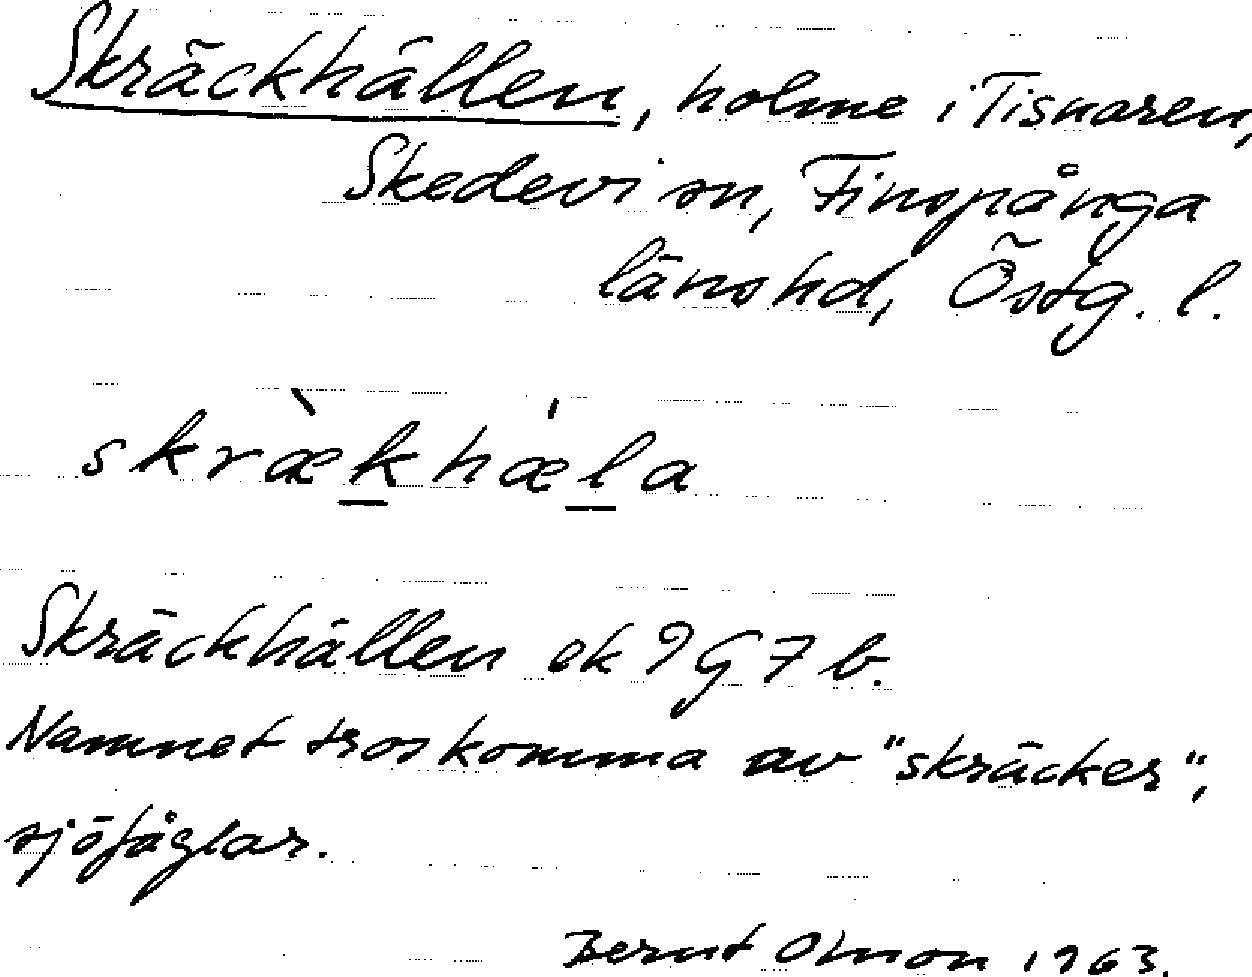 Skräckhällen, holme i Tisnaren,
Skedevi sn, Finspånga
länshd, Östg. l.
skræ̀khǽla
Skräckhällen ek 9G7b.
Namnet tros komma av "skräcker",
sjöfåglar.
Bernt Olsson 1963.